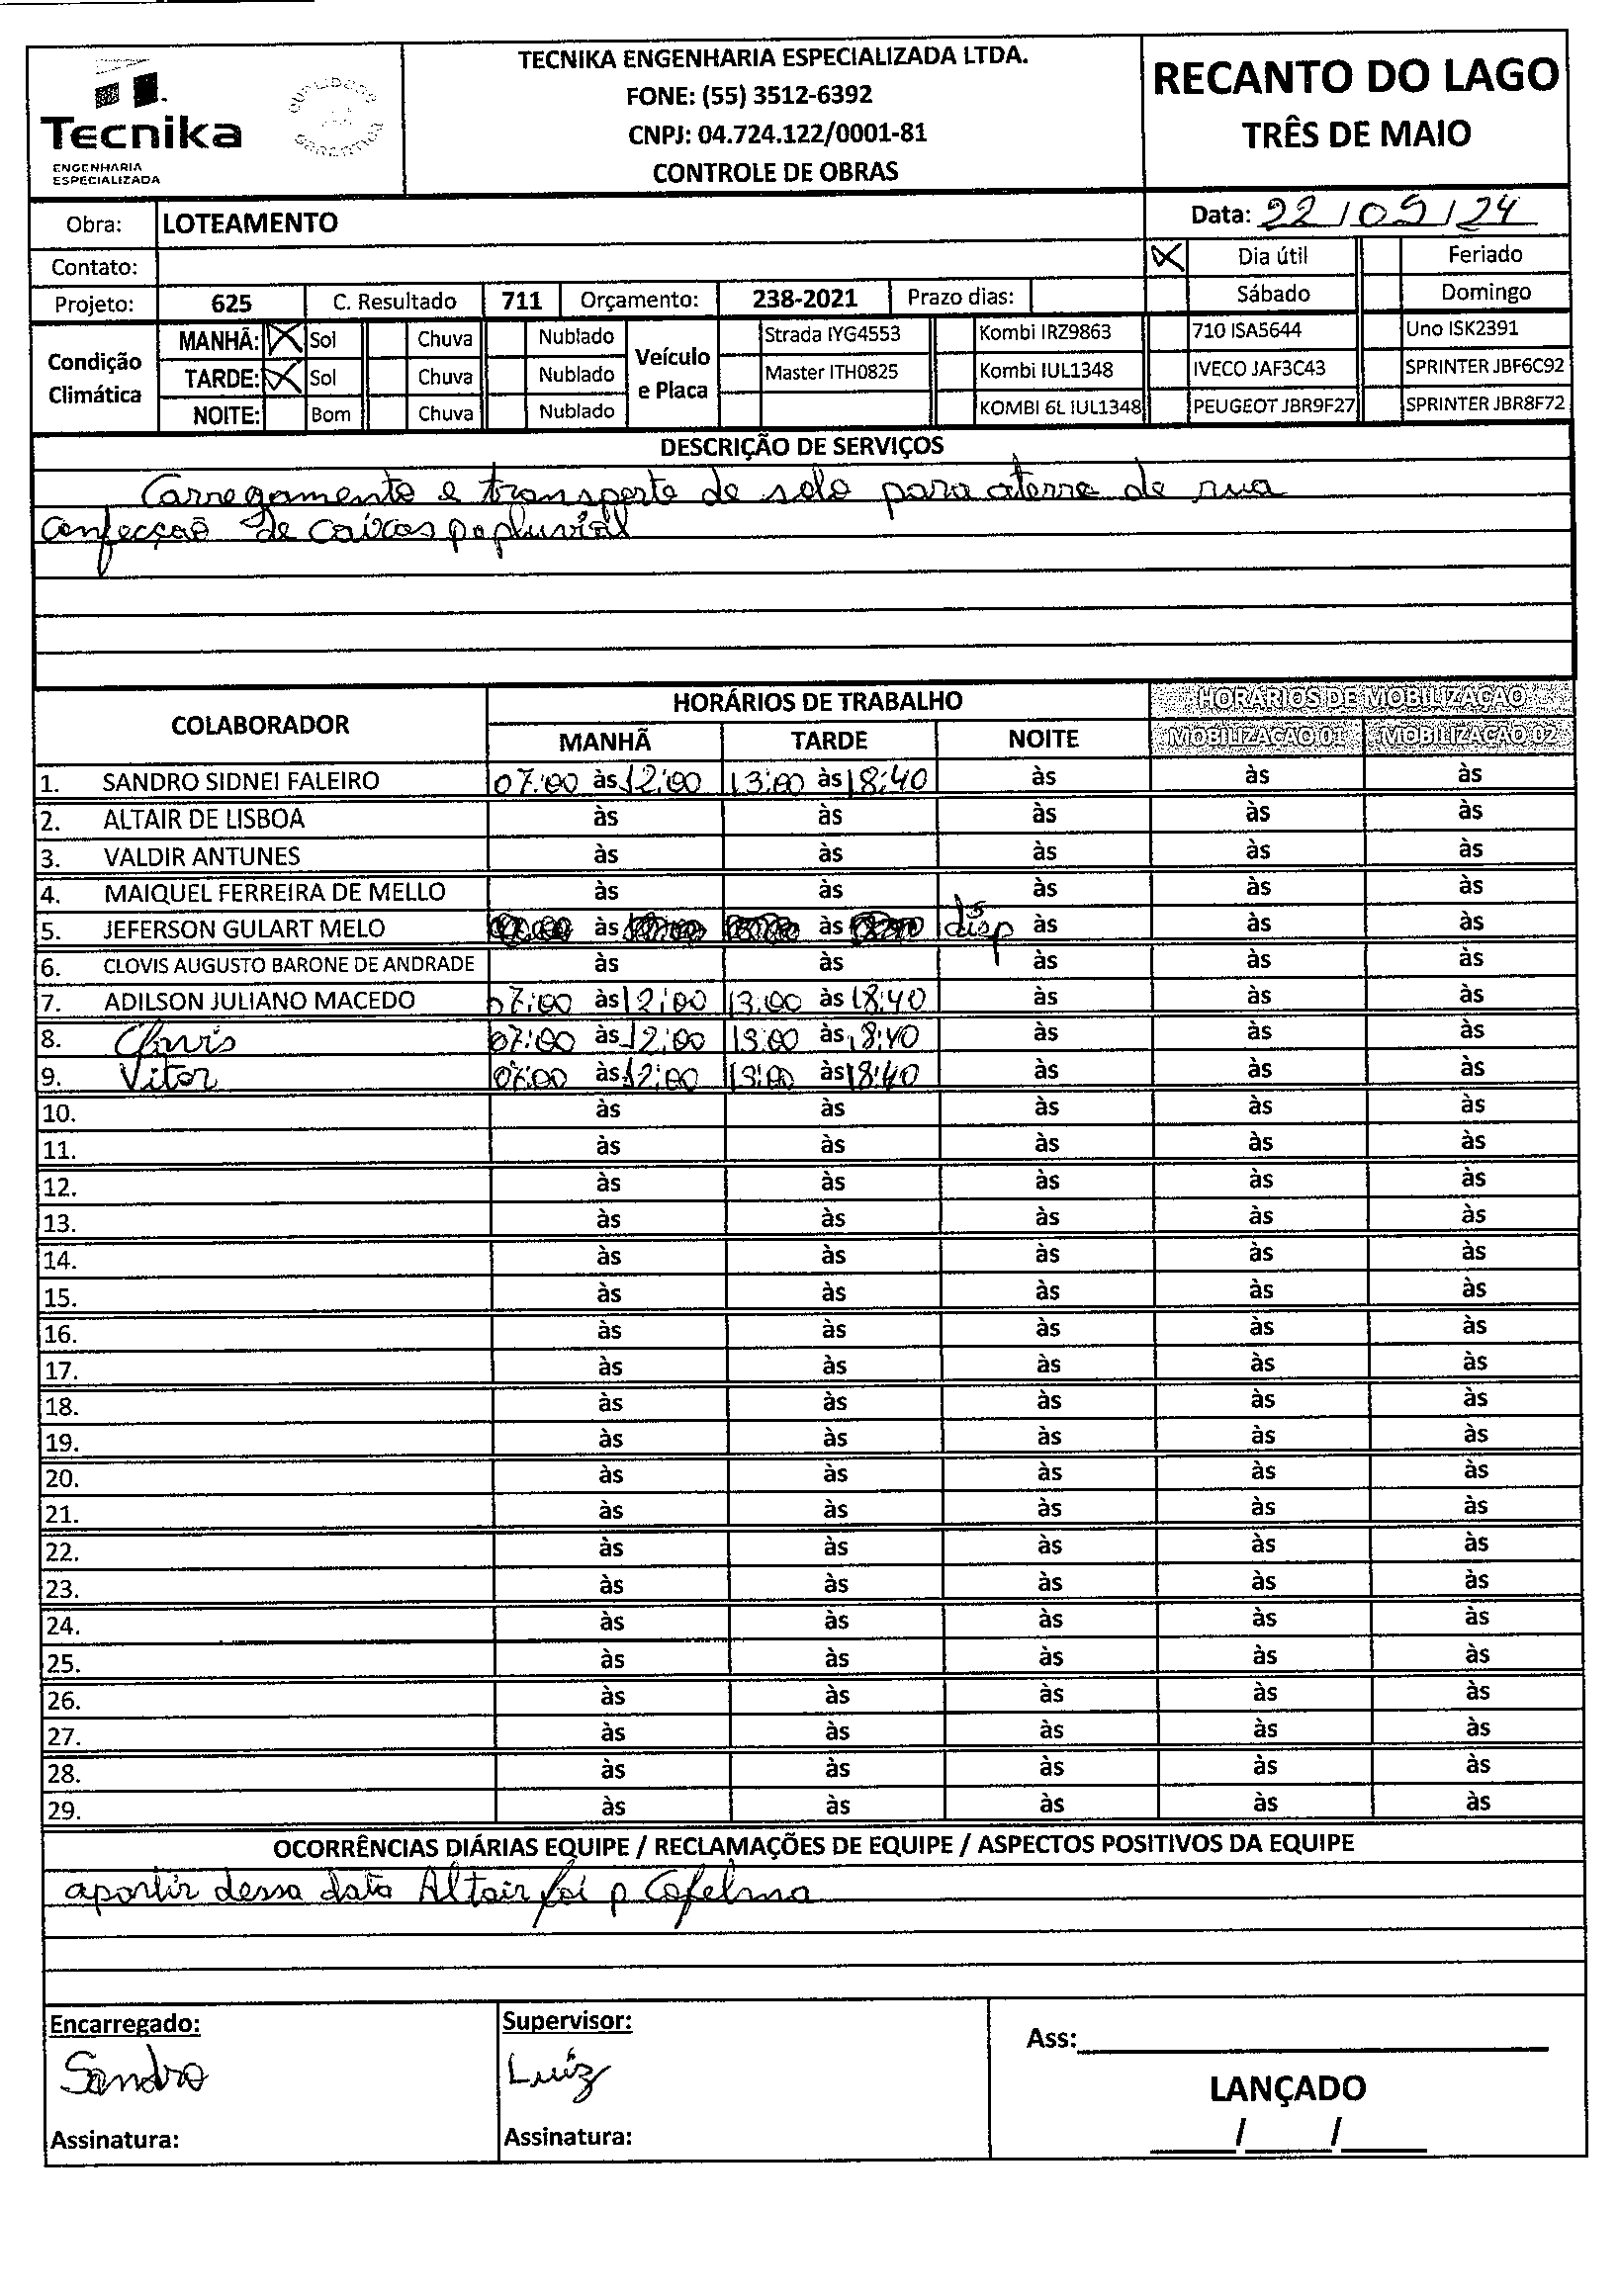 Tecnika
ENGENHARIA
ESPECIALIZADA
TECNIKA ENGENHARIA ESPECIALIZADA LTDA.
FONE: (55) 3512-6392
CNPJ: 04.724.122/0001-81
CONTROLE DE OBRAS
RECANTO DO LAGO
TRÊS DE MAIO
Obra: LOTEAMENTO
Data: 22/05/24
Contato:
Dia útil Feriado
Projeto: 625 C. Resultado 711 Orçamento: 238-2021 Prazo dias: Sábado Domingo
Condição Climática
MANHÃ: X Sol Chuva Nublado
TARDE: X Sol Chuva Nublado
NOITE: Bom Chuva Nublado
Veículo e Placa
Strada IYG4553 Kombi IRZ9863 710 ISA5644 Uno ISK2391
Master ITH0825 Kombi IUL1348 IVECO JAF3C43 SPRINTER JBF6C92
KOMBI 6L IUL1348 PEUGEOT JBR9F27 SPRINTER JBR8F72
DESCRIÇÃO DE SERVIÇOS
Carregamento e transporte de solo para aterro de rua
confecção de caixas p pluvial
COLABORADOR HORÁRIOS DE TRABALHO HORÁRIOS DE MOBILIZAÇÃO
MANHÃ TARDE NOITE MOBILIZAÇÃO 01 MOBILIZAÇÃO 02
1. SANDRO SIDNEI FALEIRO 07:00 às 12:00 13:00 às 18:40 às às às
2. ALTAIR DE LISBOA às às às às às
3. VALDIR ANTUNES às às às às às
4. MAIQUEL FERREIRA DE MELLO às às às às às
5. JEFERSON GULART MELO às às disp às às às
6. CLOVIS AUGUSTO BARONE DE ANDRADE às às às às às
7. ADILSON JULIANO MACEDO 07:00 às 12:00 13:00 às 18:40 às às às
8. Clovis 07:00 às 12:00 13:00 às 18:40 às às às
9. Vitor 07:00 às 12:00 13:00 às 18:40 às às às
10. às às às às às
11. às às às às às
12. às às às às às
13. às às às às às
14. às às às às às
15. às às às às às
16. às às às às às
17. às às às às às
18. às às às às às
19. às às às às às
20. às às às às às
21. às às às às às
22. às às às às às
23. às às às às às
24. às às às às às
25. às às às às às
26. às às às às às
27. às às às às às
28. às às às às às
29. às às às às às
OCORRÊNCIAS DIÁRIAS EQUIPE / RECLAMAÇÕES DE EQUIPE / ASPECTOS POSITIVOS DA EQUIPE
apartir dessa data Altair foi p
Encarregado: Supervisor: Ass:
Sandro Luiz
LANÇADO
Assinatura: Assinatura: / /